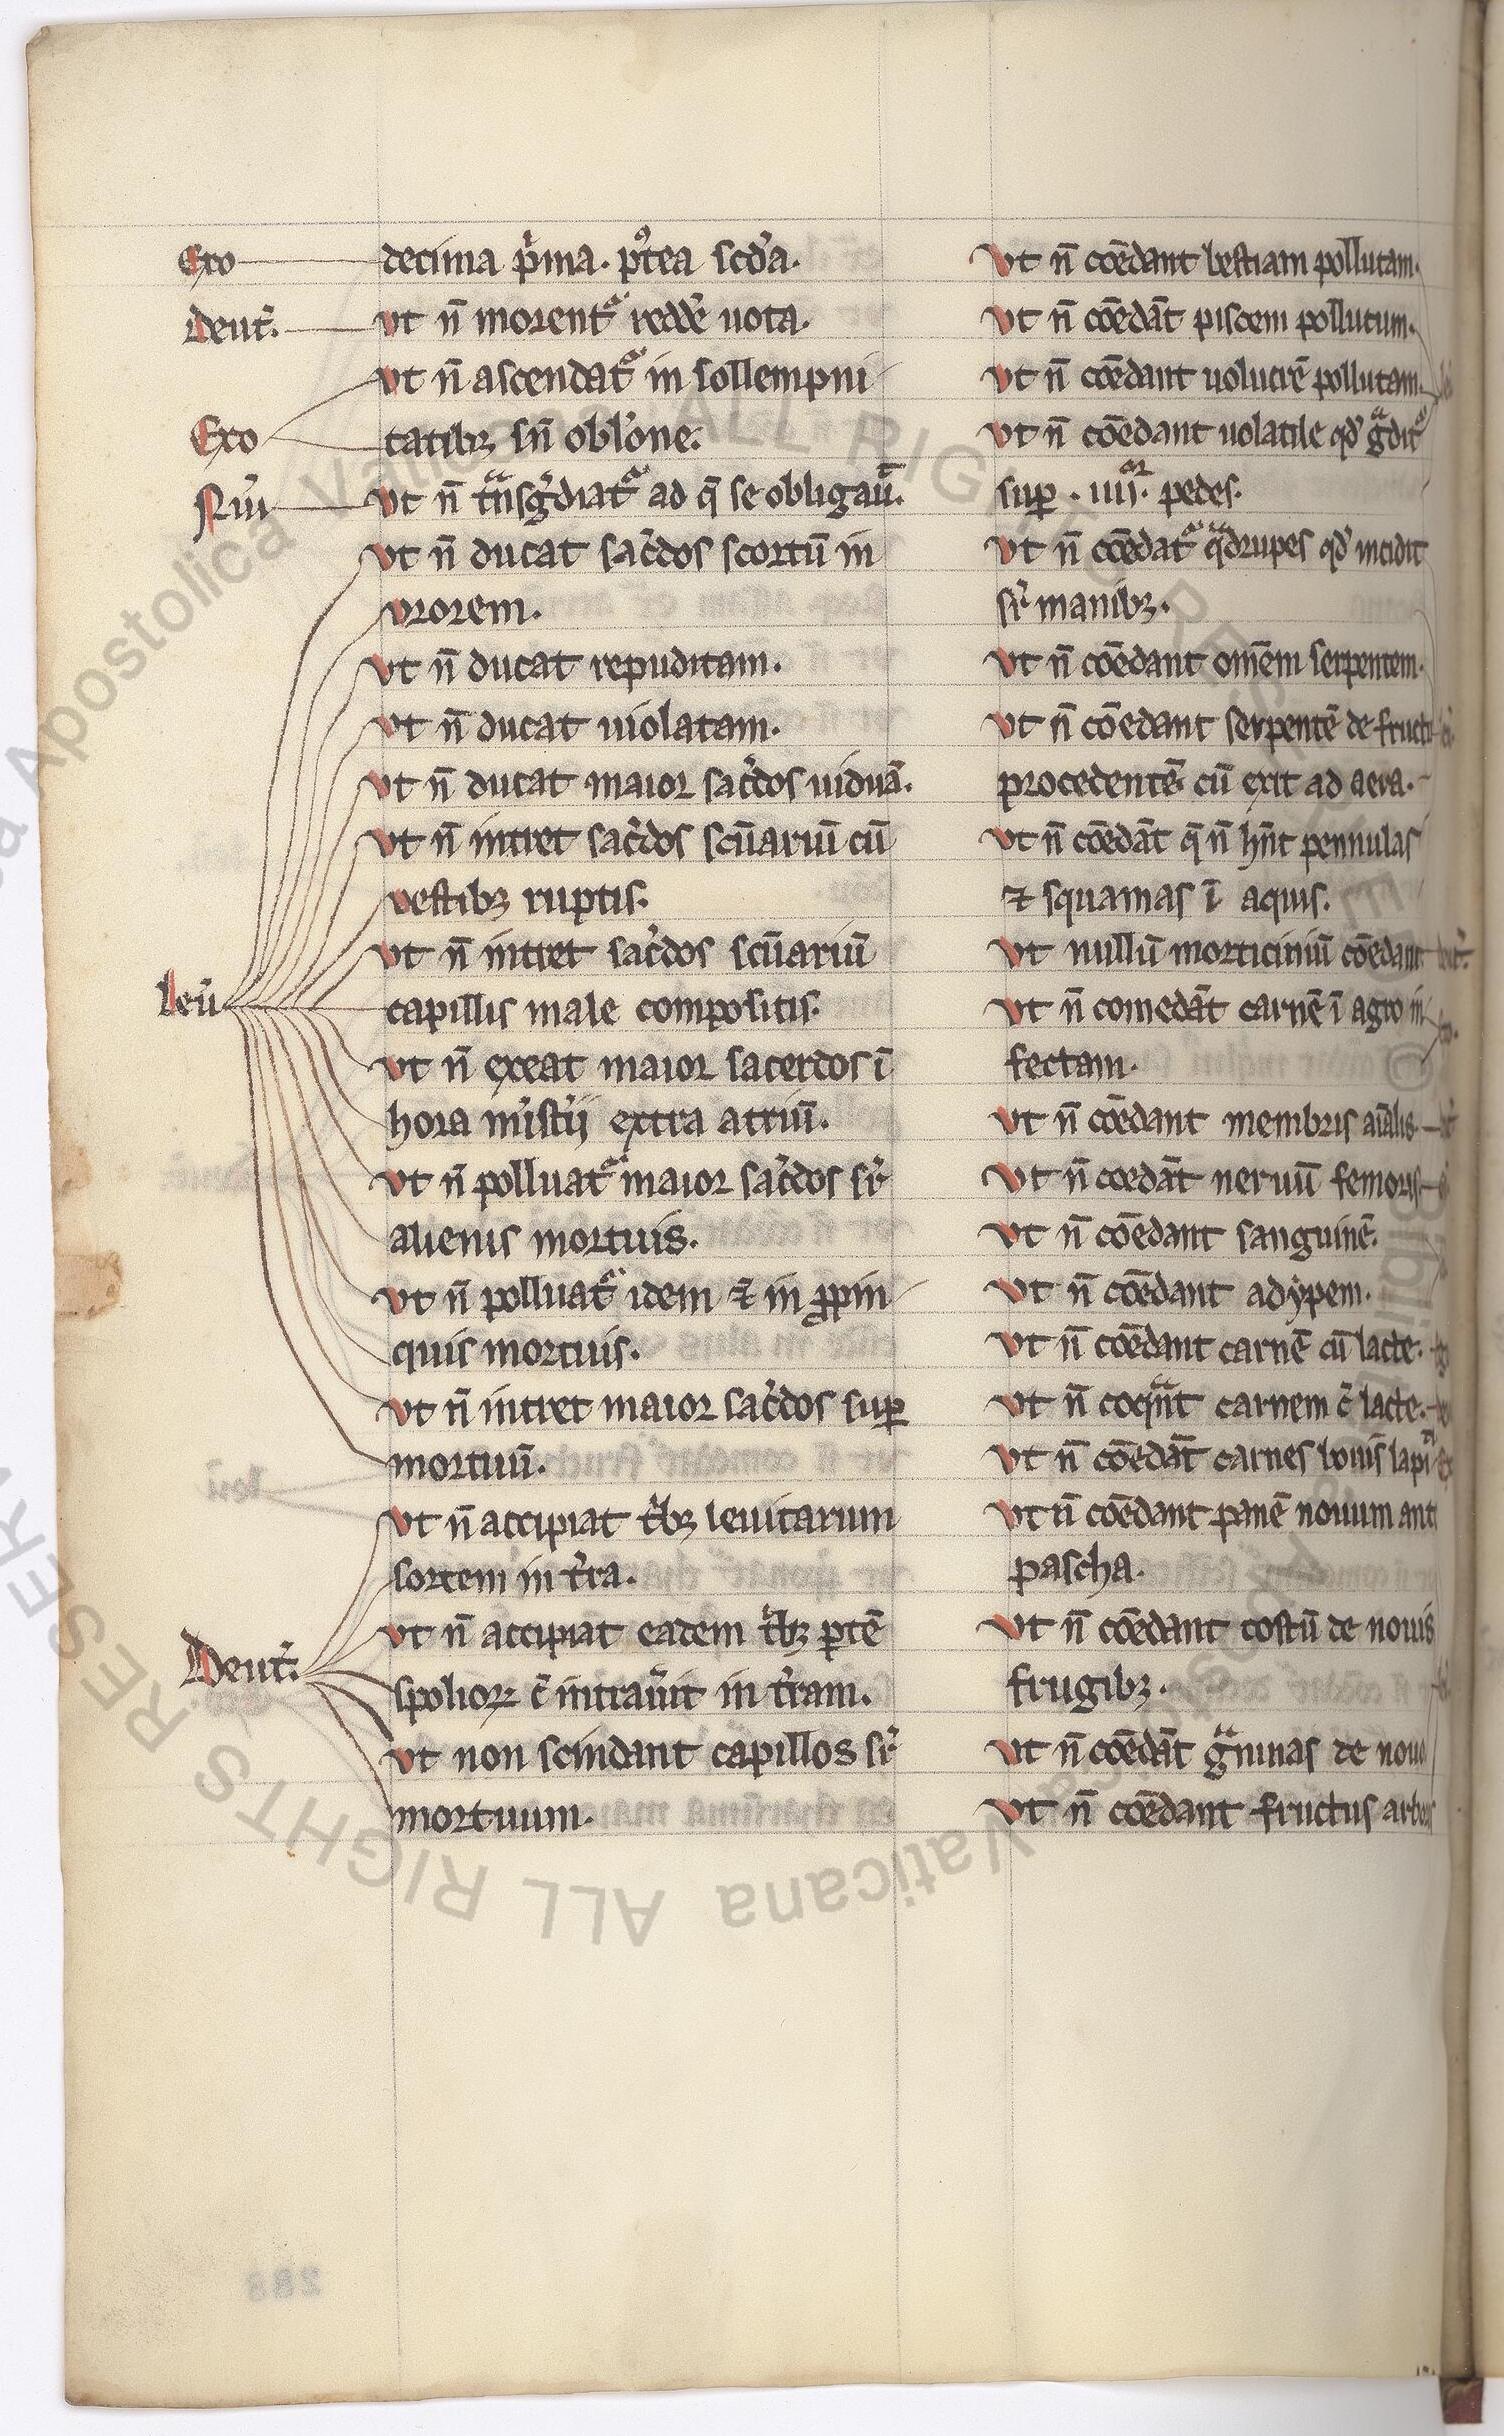 Exo
decima p̾ma. p᷒tea scd̾a.
Deut̾.
Vt n̄ morent᷑ redde̾ uota.
Vt n̄ ascendat᷑ in sollempni
Exo
tatibꝫ sn̄ obl̾one.
Nu̅
Vt n̄ tͣnsgͣdiat᷑ ad q̄ se obligau̅.
Vt n̄ ducat sac̾dos scortū in
vxorem.
Vt n̄ ducat repuditam.
Vt n̄ ducat uiolatam.
Vt n̄ ducat maior sac̾dos uiduā.
Vt n̄ intret sac̾dos scu̅ariū cū
vestibꝫ ruptis.
Vt n̄ intret sac̾dos scu̅ariū
Leu̅
capillis male compositis.
Vt n̄ exeat maior sacerdos ī
hora mi̾st̾ii extra atriū.
Vt n̄ polluat᷑ maior sac̾dos sr̾
alienis mortuis.
Vt n̄ polluat᷑ idem ⁊̄ in ꝓpin
quis mortuis.
Vt n̄ intret maior sac̾dos suꝑ
mortuū.
Vt n̄ accipiat t̾bꝫ leuitarum
sortem in t̾ra.
Vt n̄ accipiat eadem t̾bꝫ ꝑtē
Deut̾.
spolioꝝ c̄ intrau̾it in t̾ram.
Vt non scindant capillos sr̾
mortuum.
Vt n̄ cōedant bestiam pollutam.
Vt n̄ cōedāt piscem pollutum.
Vt n̄ cōedant uolucrē pollutam.
Vt n̄ cōedant uolatile qd̾ gͣdit᷑
suꝑ .iiii͛. pedes.
Vt n̄ cōedat᷑ qͣdrupes qd̾ incidit
sr̾ manibꝫ.
Vt n̄ cōedant om̄em serpentem.
Vt n̄ cōedant serpentē de fructu
procedentē cū exit ad aera.
Vt n̄ cōedāt q̄ n̄ hn̄t pennulas
⁊ squamas ī aquis.
Vt nullū morticiniū cōedant
Vt n̄ comedāt carnē ī agro in
fectam.
Vt n̄ cōedant membris aīalis.
Vt n̄ cōedāt neruū femoris
Vt n̄ cōedant sanguinē.
Vt n̄ cōedant adypem.
Vt n̄ cōedant carnē cū lacte.
Vt n̄ coqͣnt carnem c̄ lacte.
Vt n̄ cōedāt carnes bouis̄ lapi
Vt n̄ cōedant panē nouum ant
pascha.
Vt n̄ cōedant costū de nouis
frugibꝫ.
Vt n̄ cōedāt gͣminas de nouo
Vt n̄ cōedant fructus